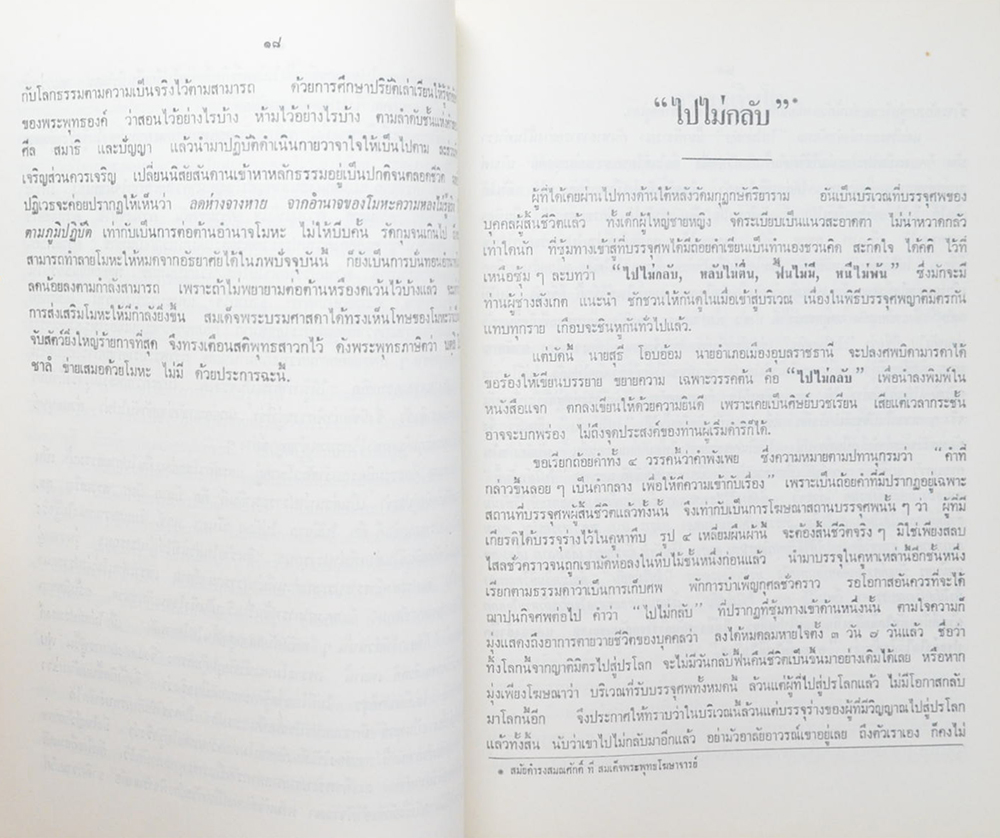 ๑๘
กับโลกธรรมตามความเป็นจริงไว้ตามสามารถ ด้วยการศึกษาปริยัติเล่าเรียนให้รู้
ของพระพุทธองค์ ว่าสอนไว้อย่างไรบ้าง ห้ามไว้อย่างไรบ้าง ตามลำดับชั้นแห่ง
ศีล สมาธิ และปัญญา แล้วนำมาปฏิบัติดำเนินกายวาจาใจให้เป็นไปตาม
เจริญส่วนควรเจริญ เปลี่ยนนิสัยสันดานเข้าหาหลักธรรมอยู่เป็นปกติจนตลอดชีวิต
ปฏิเวธจะค่อยปรากฏให้เห็นว่า ลดห่างจางหาย จากอำนาจของโมหะความหลงไม่รู้
ตามภูมิปฏิบัติ เท่ากับเป็นการต่อต้านอำนาจโมหะ ไม่ให้บีบคั้น รัดกุมจนเกินไป
สามารถทำลายโมหะให้หมดจากอัธยาศัยได้ในภพปัจจุบันนี้ ก็ยังเป็นการบั่นทอน
ลดน้อยลงตามกำลังสามารถ เพราะถ้าไม่พยายามต่อต้านหรืองดเว้นไว้บ้างแล้ว
การส่งเสริมโมหะให้มีกำลังยิ่งขึ้น สมเด็จพระบรมศาสดาได้ทรงเห็นโทษของโมหะว่า
จับสัตว์ยิ่งใหญ่ร้ายกาจที่สุด จึงทรงเตือนสติพุทธสาวกไว้ ดังพระพุทธภาษิตว่า
ชาลํ ข่ายเสมอด้วยโมหะ ไม่มี ด้วยประการฉะนี้.
“ไปไม่กลับ”*
ผู้ที่ได้เคยผ่านไปทางด้านใต้หลังวัดมกุฏกษัตริยาราม อันเป็นบริเวณที่บรรจุศพของ
บุคคลผู้สิ้นชีวิตแล้ว ทั้งเด็กผู้ใหญ่ชายหญิง จัดระเบียบเป็นแนวสะอาดตา ไม่น่าหวาดกลัว
เท่าใดนัก ที่ซุ้มทางเข้าสู่ที่บรรจุศพได้มีถ้อยคำเขียนเป็นทำนองชวนคิด สะกิดใจ ได้คติ ไว้ที่
เหนือซุ้ม ๆ ละบทว่า “ไปไม่กลับ, หลับไม่ตื่น, ฟื้นไม่มี, หนีไม่พ้น” ซึ่งมักจะมี
ท่านผู้ช่างสังเกต แนะนำ ชักชวนให้กันดูในเมื่อเข้าสู่บริเวณ เนื่องในพิธีบรรจุศพญาติมิตรกัน
แทบทุกราย เกือบจะชินหูกันทั่วไปแล้ว.
แต่บัดนี้ นายสุธี โอบอ้อม นายอำเภอเมืองอุบลราชธานี จะปลงศพบิดามารดาได้
ขอร้องให้เขียนบรรยาย ขยายความ เฉพาะวรรคต้น คือ “ไปไม่กลับ” เพื่อนำลงพิมพ์ใน
หนังสือแจก ตกลงเขียนให้ด้วยความยินดี เพราะเคยเป็นศิษย์บวชเรียน เสียแต่เวลากระชั้น
อาจจะบกพร่อง ไม่ถึงจุดประสงค์ของท่านผู้เริ่มดำริก็ได้.
ขอเรียกถ้อยคำทั้ง ๔ วรรคนี้ว่าคำพังเพย ซึ่งความหมายตามปทานุกรมว่า “คำที่
กล่าวขึ้นลอย ๆ เป็นคำกลาง เพื่อให้ตีความเข้ากับเรื่อง” เพราะเป็นถ้อยคำที่มีปรากฏอยู่เฉพาะ
สถานที่บรรจุศพผู้สิ้นชีวิตแล้วทั้งนั้น จึงเท่ากับเป็นการโฆษณาสถานบรรจุศพนั้น ๆ ว่า ผู้ที่มี
เกียรติได้บรรจุร่างไว้ในคูหาทึบ รูป ๔ เหลี่ยมผืนผ้านี้ จะต้องสิ้นชีวิตจริง ๆ มิใช่เพียงสลบ
ไสลชั่วคราวจนถูกเขามัดห่อลงในหีบไม้ชั้นหนึ่งก่อนแล้ว นำมาบรรจุในคูหาเหล่านี้อีกชั้นหนึ่ง
เรียกตามธรรมดาว่าเป็นการเก็บศพ พักการบำเพ็ญกุศลชั่วคราว รอโอกาสอันควรที่จะได้
ฌาปนกิจศพต่อไป คำว่า “ไปไม่กลับ” ที่ปรากฏที่ซุ้มทางเข้าด้านหนึ่งนั้น ตามใจความก็
มุ่งแสดงถึงอาการตายวายชีวิตของบุคคลว่า ลงได้หมดลมหายใจตั้ง ๓ วัน ๗ วันแล้ว ชื่อว่า
ทิ้งโลกนี้จากญาติมิตรไปสู่ปรโลก จะไม่มีวันกลับฟื้นคืนชีวิตเป็นขึ้นมาอย่างเดิมได้เลย หรือหาก
มุ่งเพียงโฆษณาว่า บริเวณที่รับบรรจุศพทั้งหมดนี้ ล้วนแต่ผู้ที่ไปสู่ปรโลกแล้ว ไม่มีโอกาสกลับ
มาโลกนี้อีก จึงประกาศให้ทราบว่าในบริเวณนี้ล้วนแต่บรรจุร่างของผู้ที่มีวิญญาณไปสู่ปรโลก
แล้วทั้งสิ้น นับว่าเขาไปไม่กลับมาอีกแล้ว อย่ามัวอาลัยอาวรณ์เขาอยู่เลย ถึงตัวเราเอง ก็คงไม่
๑ สมัยดำรงสมณศักดิ์ ที่ สมเด็จพระพุทธโฆษาจารย์